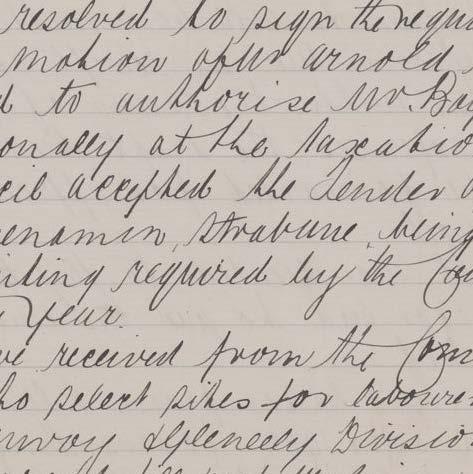 resolved to sign the requi
motion of Mr Arnold
d to authorise Mr. Ba
onally at the taxatio
cil accepted the Tender
enamin, Strabane, being
inting required by the Co
year.
ve received from the Com
ho select sites for laboure
nway & Gleneely Divisio